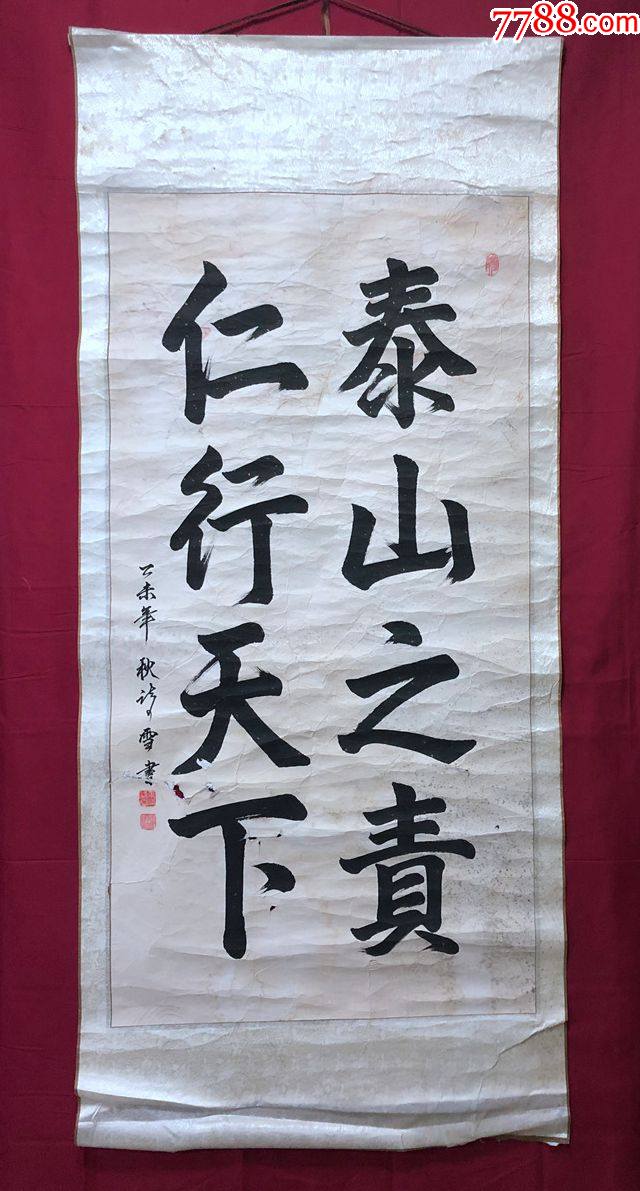 7788.com
泰山之責
仁行天下
未年 秋 雪書